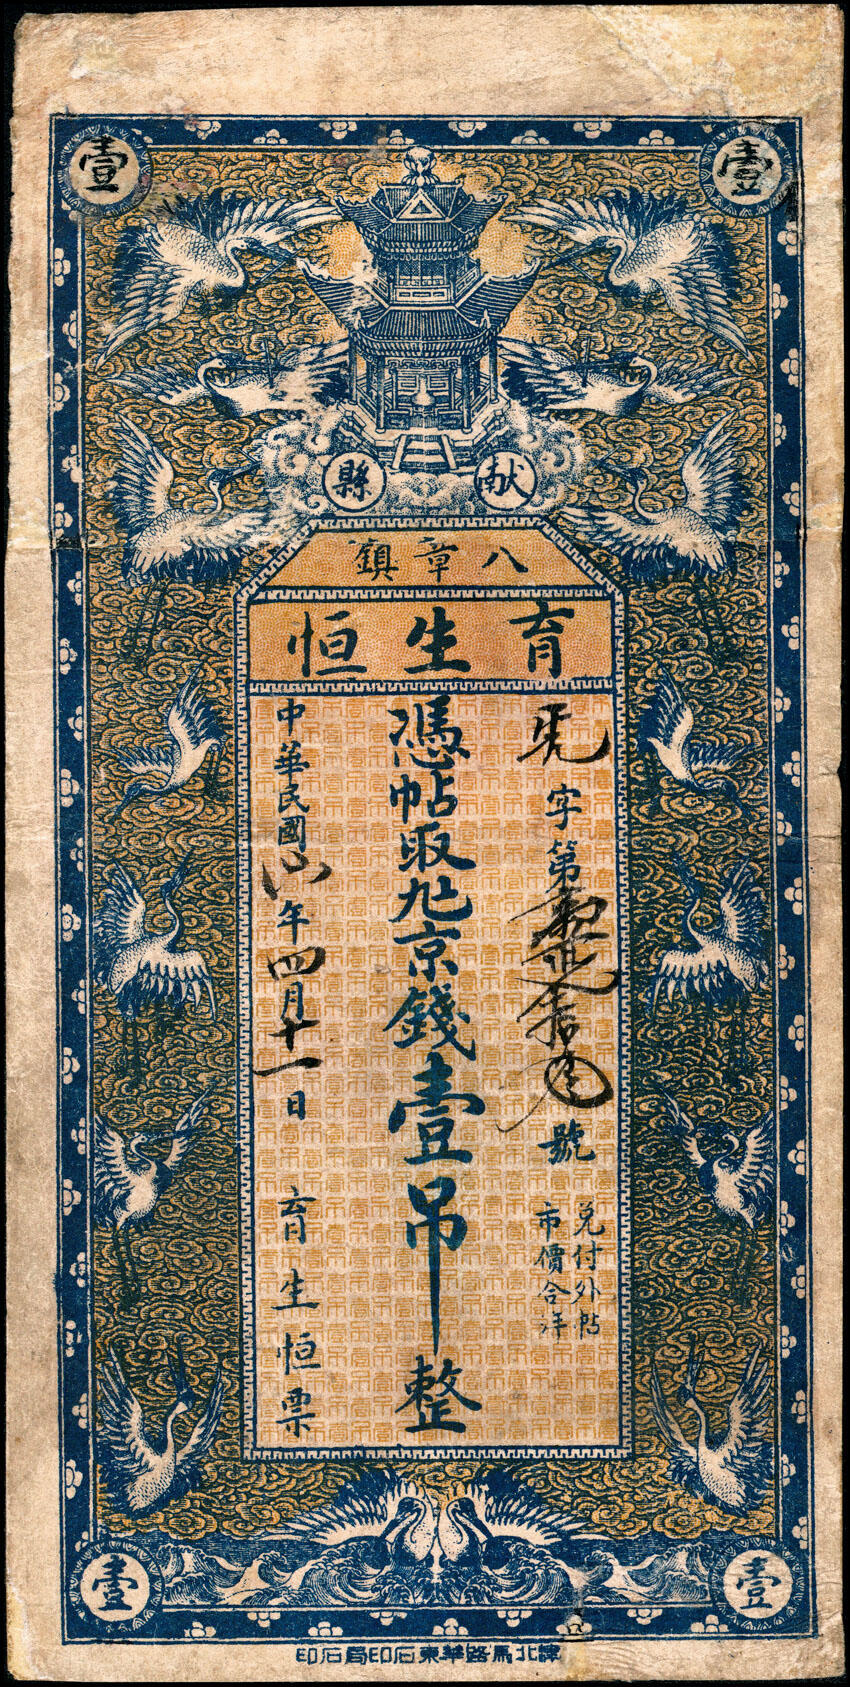 壹 壹
献縣
八章鎮
育生恒
字第
號
兑付外帖
市價合洋
憑帖取九京錢壹吊整
中華民國
年四月十一日
育生恒票
壹 壹
津北馬路華東石印局石印